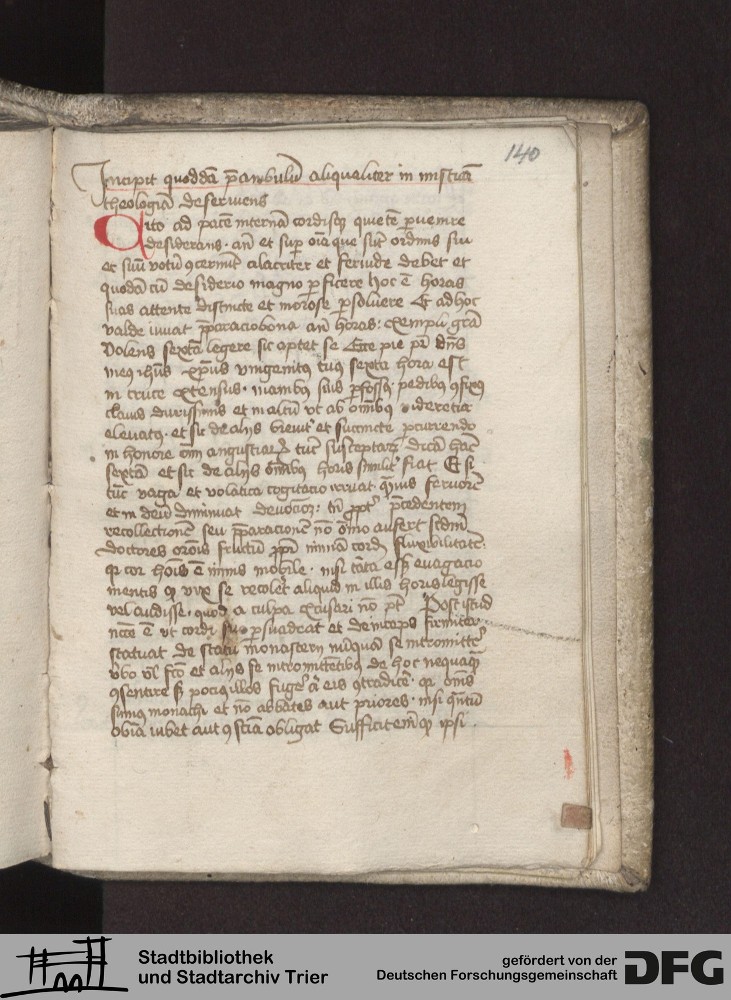 140
Incipit quoddā p̄ambulū aliqualiter in misticā
theologiā deseruiens
Cito ad pacē internā cordisqȝ quietē peruenire
desiderans · an̄ et suꝑ oīa que sūt ordinis sui
et suū votū ꝯcernūt alacriter et feruide debet et
quodā cū desiderio magno ꝑficere hoc ē horas
suas attente distincte et morose ꝑsoluere Et ad hoc
valde iuuat p̄paracio bona an̄ horas : exempli grā
Volens sextā legere sic aptet se Ecce pie pr̄ dn̄s
meꝰ ihūs xp̄us vnigenitꝰ tuꝰ sexta hora est
in cruce extensus · manibꝰ suis ꝑfossis pedibꝰ ꝯfixꝰ
clauis durissimis et in altū vt ab oīnibꝰ videretur
eleuatꝰ · et sic de alijs breuit̄ et succincte ꝑcurrendo
in honore oīm angustiarꝝ tūc susceptarꝝ dicā hāc
sextā et sic de alijs oīnibꝰ horis simili fiat Et si
tūc vaga et volatica cogitacio irruat qͣuis feruorē
et in deū diminuat deuocionē : tn̄ ꝓpt̄ p̄cedentem
recollectionē seu p̄paracionē nō oīno aufert scdm̄
doctores oronis fructū ꝓpt̄ nimiā cordis fluxibilitatē ·
qꝛ cor hoīs ē nimis mobile · nisi tāta esset euagacio
mentis qꝙ vix se recolet aliquid in illis horis legisse
vel audisse · quod a culpa excusari nō pt̄ Post istud
ncc̄e ē vt cordi suo ꝑsuadeat et deinceps firmiter
statuat de statu monasterij nūquā se intromitte
vbo vl̄ fcō et alijs se intromittētibꝰ de hoc nequaqͣ
ꝯsentire sȝ pociꝰ illos fuge a eis ꝯtradice · qꝛ oīnes
sumꝰ monachi et nō abbates aut priores · nisi qn̄tū
obīa iubet aut ꝯsciā obligat Sufficit em̄ qꝙ ipsi
Stadtbibliothek
und Stadtarchiv Trier
gefördert von der
Deutschen Forschungsgemeinschaft
DFG